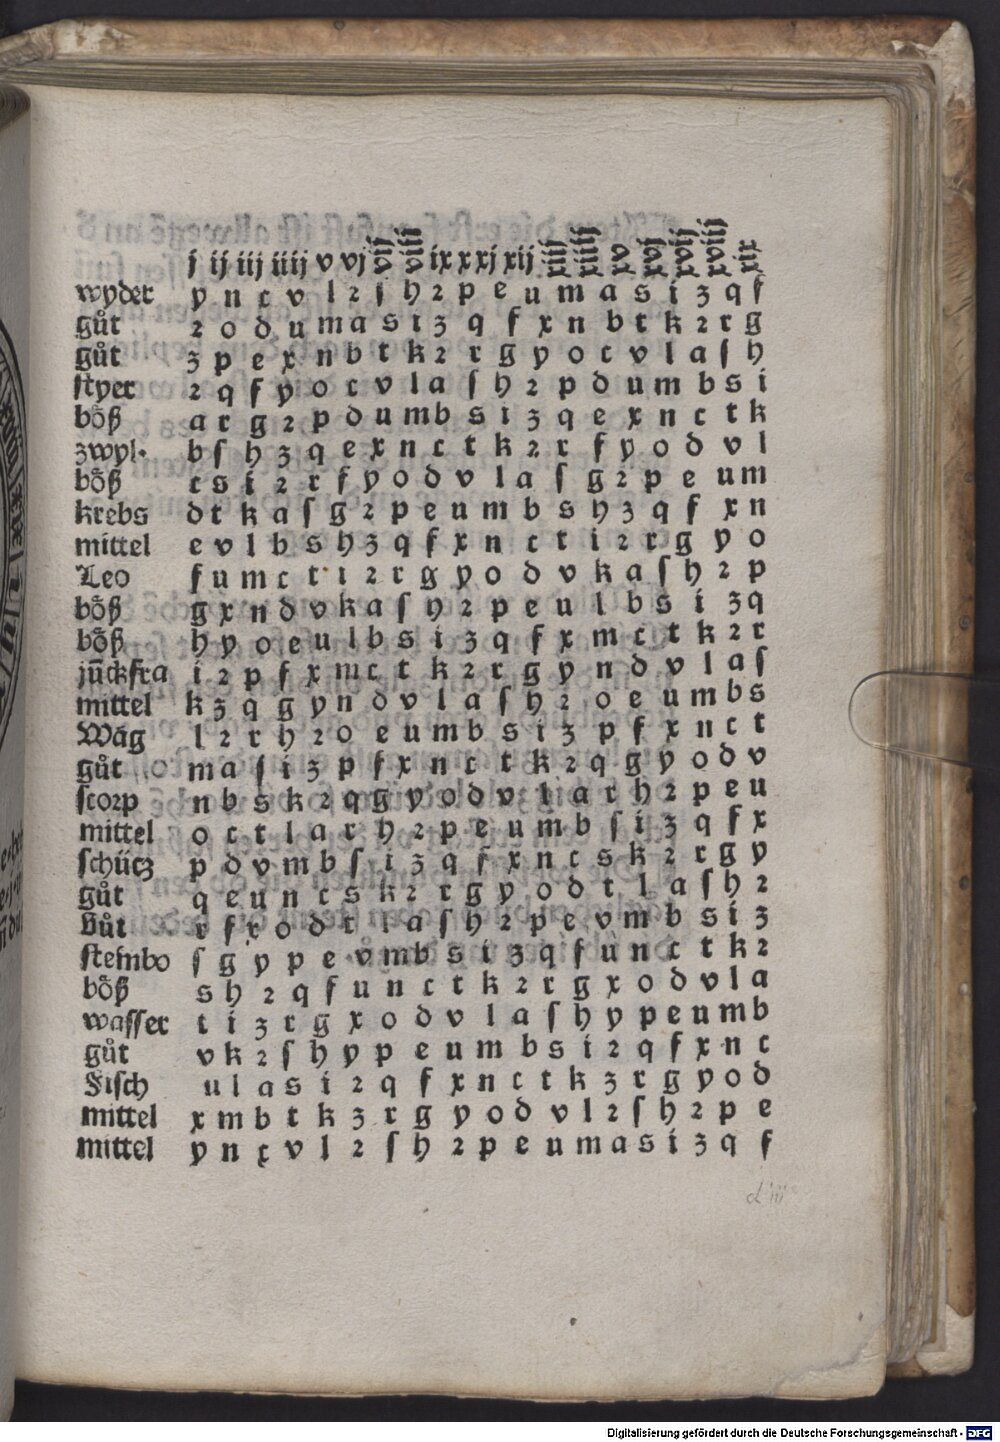 j ij iij iiij v vj vij viij ix x xj xij xiij xiiij xv xvj xvij xviij xix
wyder y n c v l 2 ſ h 2 p e u m a s i z q f
gůt 2 o d u m a s i z q f x n b t k 2 r g
gůt z p e x n b t k 2 r g y o c v l a ſ h
ſtyer 2 q f y o c v l a ſ h 2 p d u m b s i
bo̊ß a r g 2 p d u m b s i z q e x n c t k
zwyl· b ſ h z q e x n c t k 2 r f y o d v l
bo̊ß c s i 2 r f y o d v l a ſ g 2 p e u m
krebs d t k a ſ g 2 p e u m b s h z q f x n
mittel e v l b s h z q f x n c t i 2 r g y o
Leo f u m c t i 2 r g y o d v k a ſ h 2 p
bo̊ß g x n d v k a ſ h 2 p e u l b s i z q
bo̊ß h y o e u l b s i z q f x m c t k 2 r
jūckfra i 2 p f x m c t k 2 r g y n d v l a ſ
mittel k z q g y n d v l a ſ h 2 o e u m b s
Wåg l 2 r h 2 o e u m b s i z p f x n c t
gůt m a ſ i z p f x n c t k 2 q g y o d v
ſcorp n b s k 2 q g y o d v l a r h 2 p e u
mittel o c t l a r h 2 p e u m b ſ i z q f x
ſchütz p d v m b ſ i z q f x n c s k 2 r g y
gůt q e u n c s k 2 r g y o d t l a ſ h 2
gůt r f x o d t l a ſ h 2 p e v m b s i z
ſteinbo ſ g y p e v m b s i z q f u n c t k 2
bo̊ß s h 2 q f u n c t k 2 r g x o d v l a
waſſer t i z r g x o d v l a ſ h y p e u m b
gůt v k 2 ſ h y p e u m b s i 2 q f x n c
Fiſch u l a s i 2 q f x n c t k z r g y o d
mittel x m b t k z r g y o d v l 2 ſ h 2 p e
mittel y n c v l 2 ſ h 2 p e u m a s i z q f
d iii
Digitalisierung gefördert durch die Deutsche Forschungsgemeinschaft - DFG